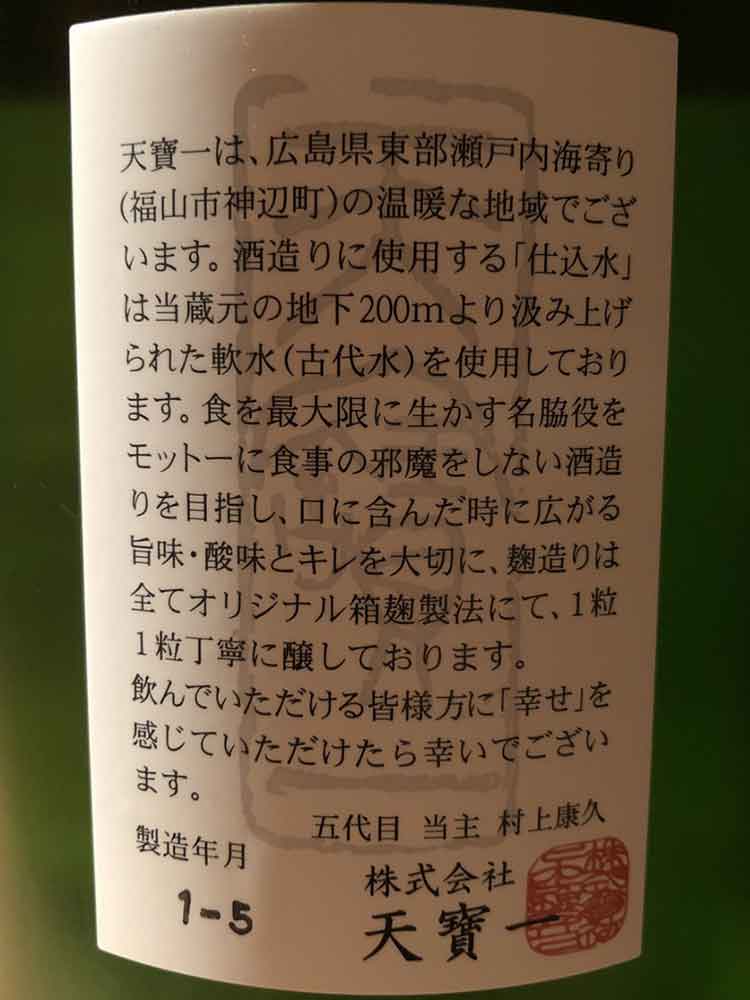 天寶一は、広島県東部瀬戸内海寄り
(福山市神辺町)の温暖な地域でござ
います。酒造りに使用する「仕込水」
は当蔵元の地下200mより汲み上げ
られた軟水(古代水)を使用しており
ます。食を最大限に生かす名脇役を
モットーに食事の邪魔をしない酒造
りを目指し、口に含んだ時に広がる
旨味・酸味とキレを大切に、麹造りは
全てオリジナル箱麹製法にて、1粒
1粒丁寧に醸しております。
飲んでいただける皆様方に「幸せ」を
感じていただけたら幸いでござい
ます。
五代目 当主 村上康久
製造年月
1-5
株式会社
天寶一